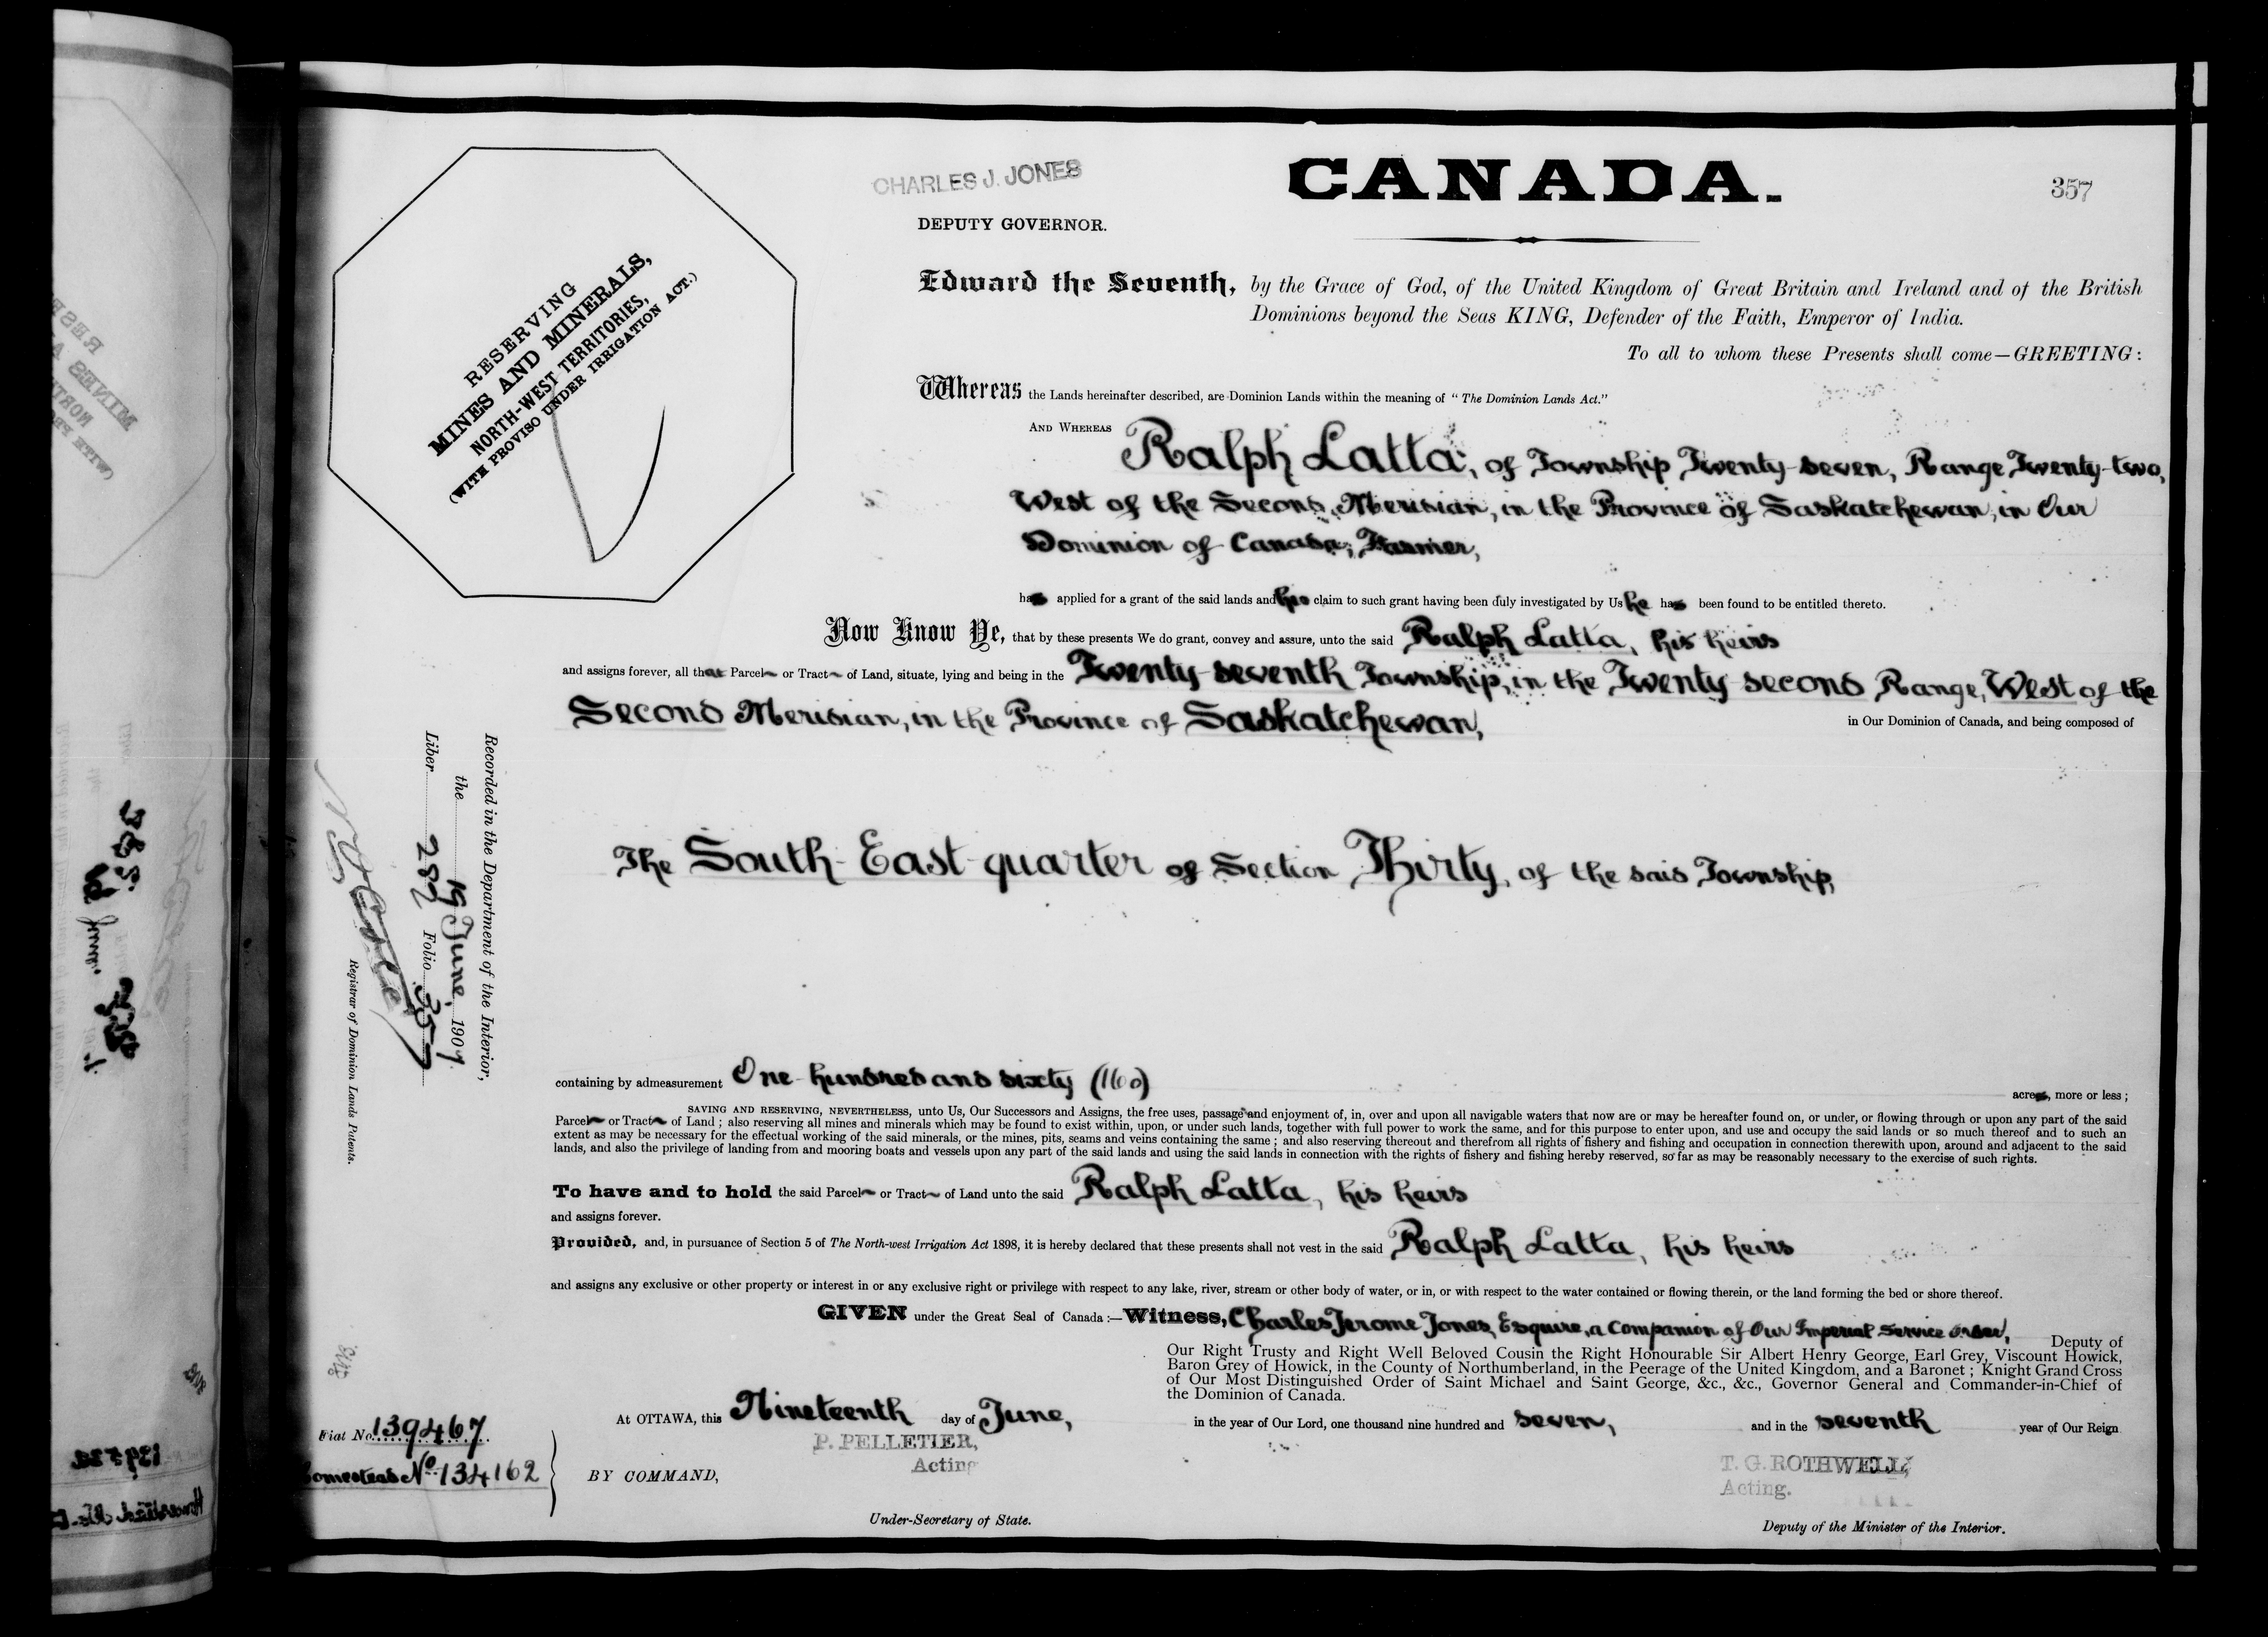 CHARLES J. JONES
CANADA.
357
DEPUTY GOVERNOR.
RESERVING
MINES AND MINERALS,
NORTH-WEST TERRITORIES,
(WITH PROVISO UNDER IRRIGATION ACT.)
Edward the Seventh, by the Grace of God, of the United Kingdom of Great Britain and Ireland and of the British
Dominions beyond the Seas KING, Defender of the Faith, Emperor of India.
To all to whom these Presents shall come—GREETING:
Whereas the Lands hereinafter described, are Dominion Lands within the meaning of "The Dominion Lands Act."
AND WHEREAS Ralph Latta, of Township Twenty-seven, Range Twenty-two,
West of the Second Meridian, in the Province of Saskatchewan, in Our
Dominion of Canada, Farmer,
has applied for a grant of the said lands and his claim to such grant having been duly investigated by Us he has been found to be entitled thereto.
Now Know Ye, that by these presents We do grant, convey and assure, unto the said Ralph Latta, his heirs
and assigns forever, all that Parcel or Tract of Land, situate, lying and being in the Twenty-seventh Township, in the Twenty-second Range, West of the
Second Meridian, in the Province of Saskatchewan, in Our Dominion of Canada, and being composed of
The South-East-quarter of Section Thirty, of the said Township,
containing by admeasurement One hundred and sixty (160) acres, more or less;
SAVING AND RESERVING, NEVERTHELESS, unto Us, Our Successors and Assigns, the free uses, passage and enjoyment of, in, over and upon all navigable waters that now are or may be hereafter found on, or under, or flowing through or upon any part of the said
Parcel or Tract of Land; also reserving all mines and minerals which may be found to exist within, upon, or under such lands, together with full power to work the same, and for this purpose to enter upon, and use and occupy the said lands or so much thereof and to such an
extent as may be necessary for the effectual working of the said minerals, or the mines, pits, seams and veins containing the same; and also reserving thereout and therefrom all rights of fishery and fishing and occupation in connection therewith upon, around and adjacent to the said
lands, and also the privilege of landing from and mooring boats and vessels upon any part of the said lands and using the said lands in connection with the rights of fishery and fishing hereby reserved, so far as may be reasonably necessary to the exercise of such rights.
To have and to hold the said Parcel or Tract of Land unto the said Ralph Latta, his heirs
and assigns forever.
Provided, and, in pursuance of Section 5 of The North-west Irrigation Act 1898, it is hereby declared that these presents shall not vest in the said Ralph Latta, his heirs
and assigns any exclusive or other property or interest in or any exclusive right or privilege with respect to any lake, river, stream or other body of water, or in, or with respect to the water contained or flowing therein, or the land forming the bed or shore thereof.
GIVEN under the Great Seal of Canada:—Witness, Charles Jerome Jones, Esquire, a Companion of Our Imperial Service Order, Deputy of
Our Right Trusty and Right Well Beloved Cousin the Right Honourable Sir Albert Henry George, Earl Grey, Viscount Howick,
Baron Grey of Howick, in the County of Northumberland, in the Peerage of the United Kingdom, and a Baronet; Knight Grand Cross
of Our Most Distinguished Order of Saint Michael and Saint George, &c., &c., Governor General and Commander-in-Chief of
the Dominion of Canada.
At OTTAWA, this Nineteenth day of June, in the year of Our Lord, one thousand nine hundred and seven, and in the seventh year of Our Reign
P. PELLETIER,
Acting
BY COMMAND,
Under-Secretary of State.
T. G. ROTHWELL,
Acting.
Deputy of the Minister of the Interior.
Recorded in the Department of the Interior,
the 19 June, 1907.
Liber 282 Folio 357
Registrar of Dominion Lands Patents.
Fiat No. 139467
Homestead No. 134162